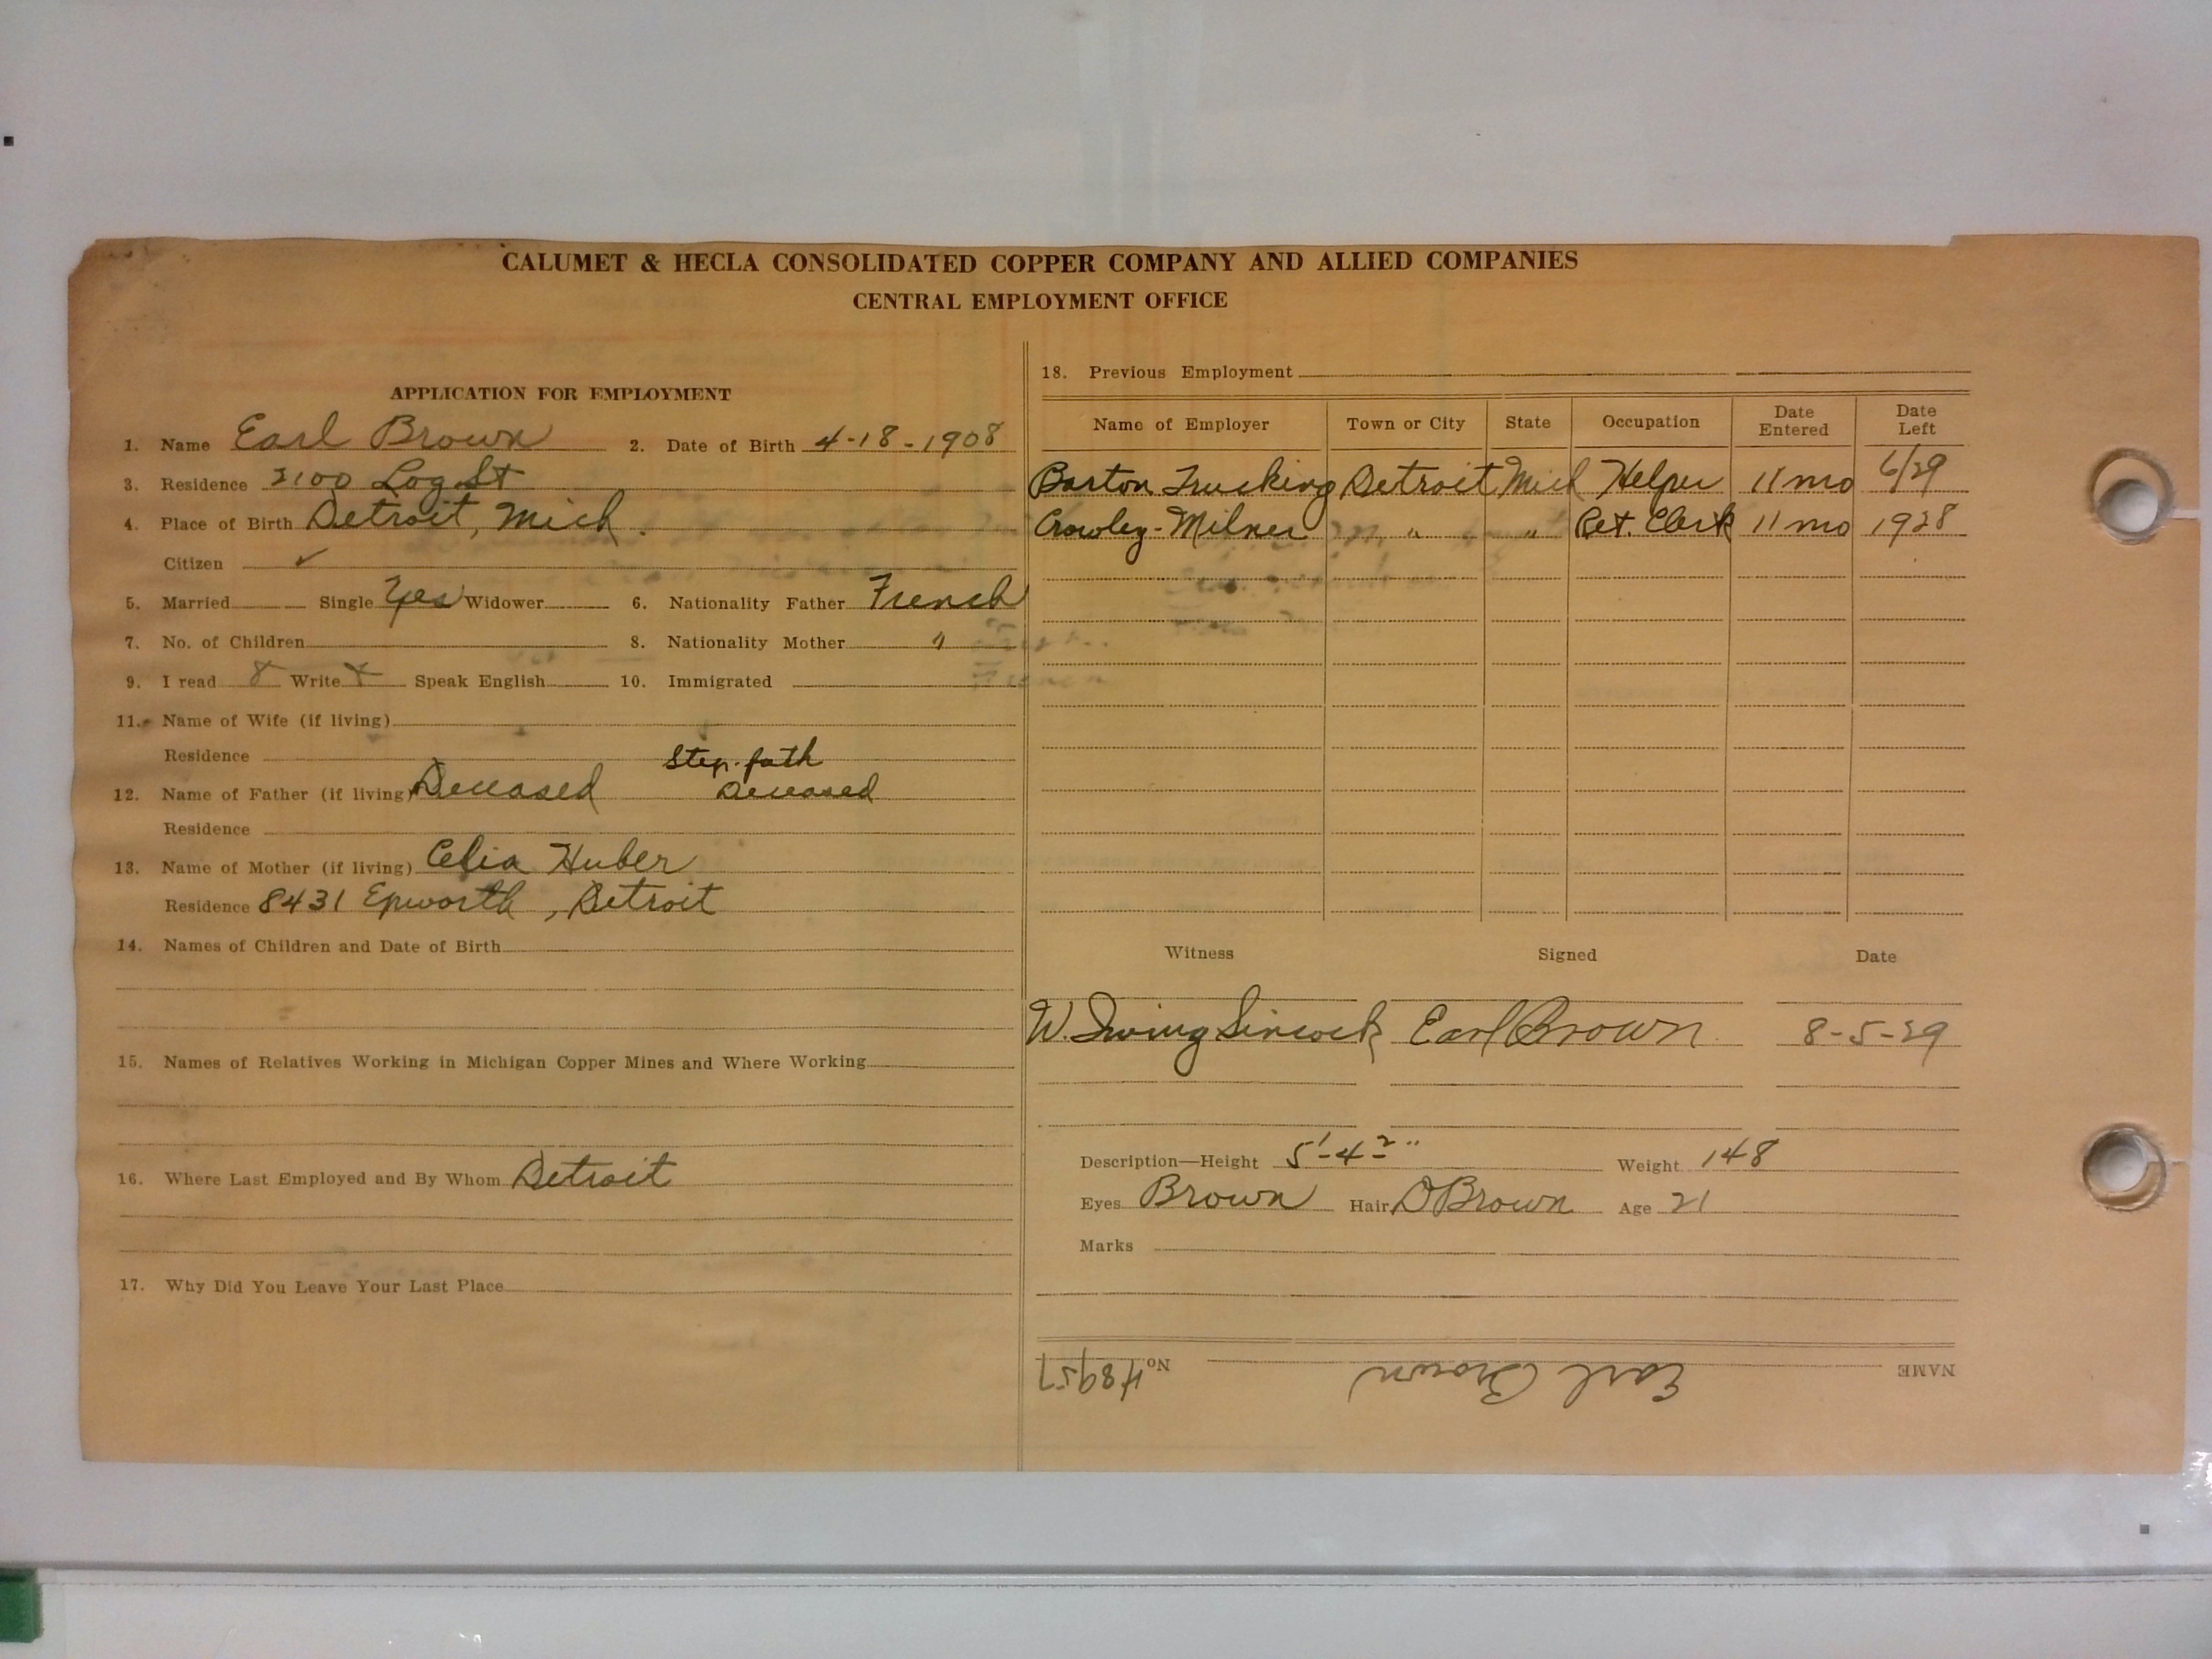 CALUMET & HECLA CONSOLIDATED COPPER COMPANY AND ALLIED COMPANIES
CENTRAL EMPLOYMENT OFFICE
APPLICATION FOR EMPLOYMENT
1. Name Earl Brown 2. Date of Birth 4-18-1908
3. Residence 2100 Log St
4. Place of Birth Detroit, Mich.
Citizen ✓
5. Married Single Yes Widower 6. Nationality Father French
7. No. of Children 8. Nationality Mother "
9. I read Write Speak English 10. Immigrated
11. Name of Wife (if living)
Residence
Step-fath
12. Name of Father (if living) Deceased Deceased
Residence
13. Name of Mother (if living) Celia Huber
Residence 8431 Epworth, Detroit
14. Names of Children and Date of Birth
15. Names of Relatives Working in Michigan Copper Mines and Where Working
16. Where Last Employed and By Whom Detroit
17. Why Did You Leave Your Last Place
18. Previous Employment
Name of Employer Town or City State Occupation Date Entered Date Left
Barton Trucking Detroit Mich Helper 11 mo 6/29
Crowley-Milner " " Clerk 11 mo 1928
Witness Signed Date
W. Irving Sincock Earl Brown 8-5-29
Description—Height 5'-4 2" Weight 148
Eyes Brown Hair D Brown Age 21
Marks
NAME Earl Brown No. 48957